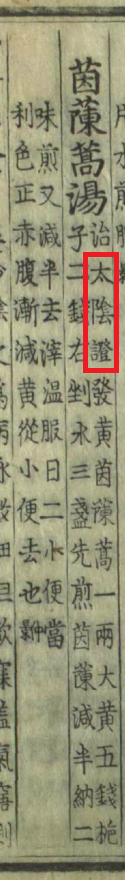 片水煎服
茵蔯蒿湯
治太陰證發黃茵蔯蒿一兩大黃五錢梔
子二錢右剉水三盞先煎茵蔯減半納二
味煎又減半去滓溫服日二小便當
利色正赤腹漸減黃從小便去也仲景